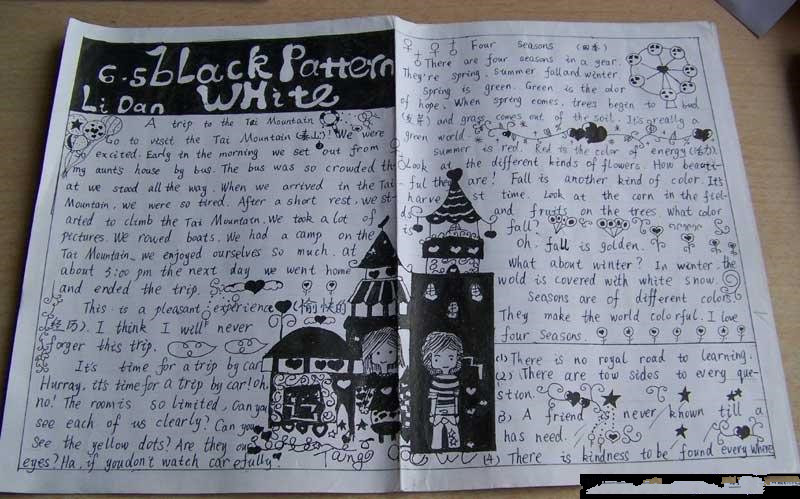 6.5 black Pattern
Li Dan White
A trip to the Tai Mountain
Go to visit the Tai Mountain (泰山)! We were
so excited. Early in the morning we set out from
my aunt's house by bus. The bus was so crowded th-
at we stood all the way. When we arrived in the Tai
Mountain, we were so tired. After a short rest, we st-
arted to climb the Tai Mountain. We took a lot of
pictures. We rowed boats. We had a camp on the
Tai Mountain, we enjoyed ourselves so much. at
about 5:00 pm the next day we went home
and ended the trip.
This is a pleasant experience (愉快的
经历). I think I will never
forger this trip.
It's time for a trip by car!
Hurray, it's time for a trip by car! oh,
no! The room is so limited. Can you
see each of us clearly? Can you
see the yellow dots? Are they our
eyes? Ha, if you don't watch carefully.
Tang
Four Seasons (四季)
There are four seasons in a year.
They're spring, summer fall and winter
Spring is green. Green is the color
of hope. When spring comes, trees begin to bud
(发芽) and grass comes out of the soil. It's really a
green world.
Summer is red. Red is the color of energy (活力).
Look at the different kinds of flowers. How beauti-
ful they are! Fall is another kind of color. It's
harvest time. Look at the corn in the fiel-
ds and fruits on the trees. What color
is fall?
Oh. fall is golden.
What about winter? In winter. the
wold is covered with white snow.
Seasons are of different colors
They make the world colorful. I love
four seasons.
(1) There is no royal road to learning.
(2) There are tow sides to every que-
stion.
(3) A friend is never known till a
has need.
(4) There is kindness to be found everywhere